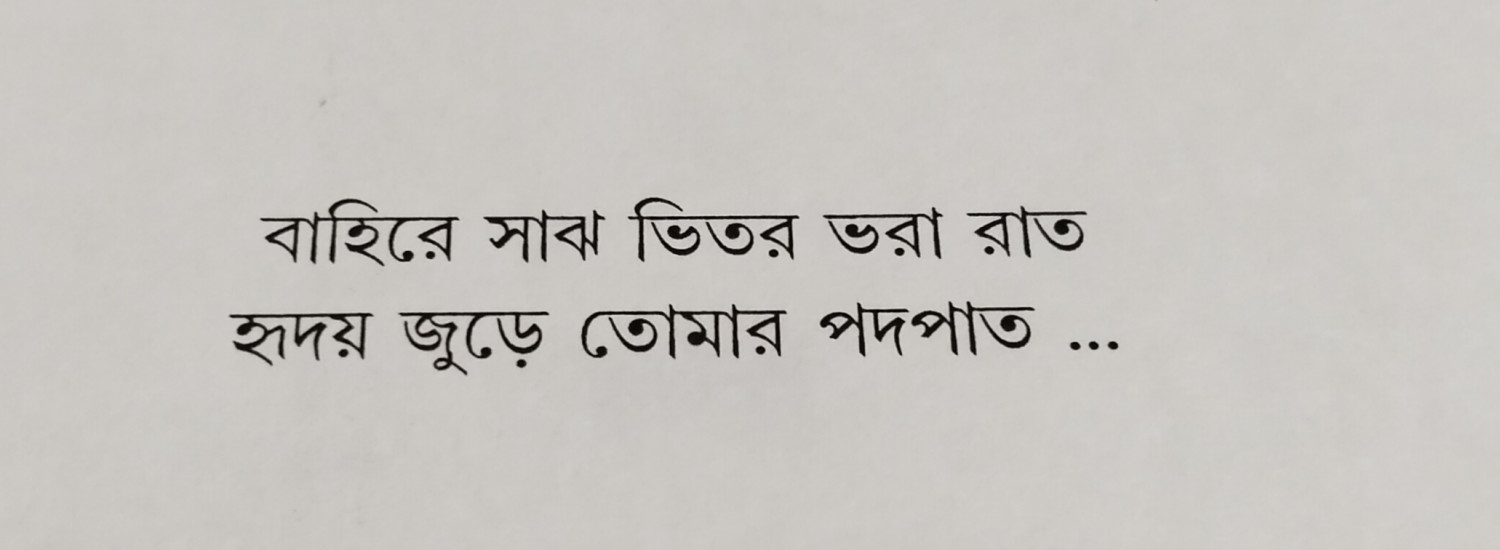 বাহিরে সাঝ ভিতর ভরা রাত
হৃদয় জুড়ে তোমার পদপাত ...